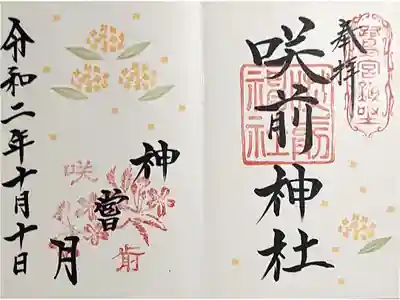 奉拝
咲前神社
咲前
神社
神嘗月
咲
前
令和二年十月十日